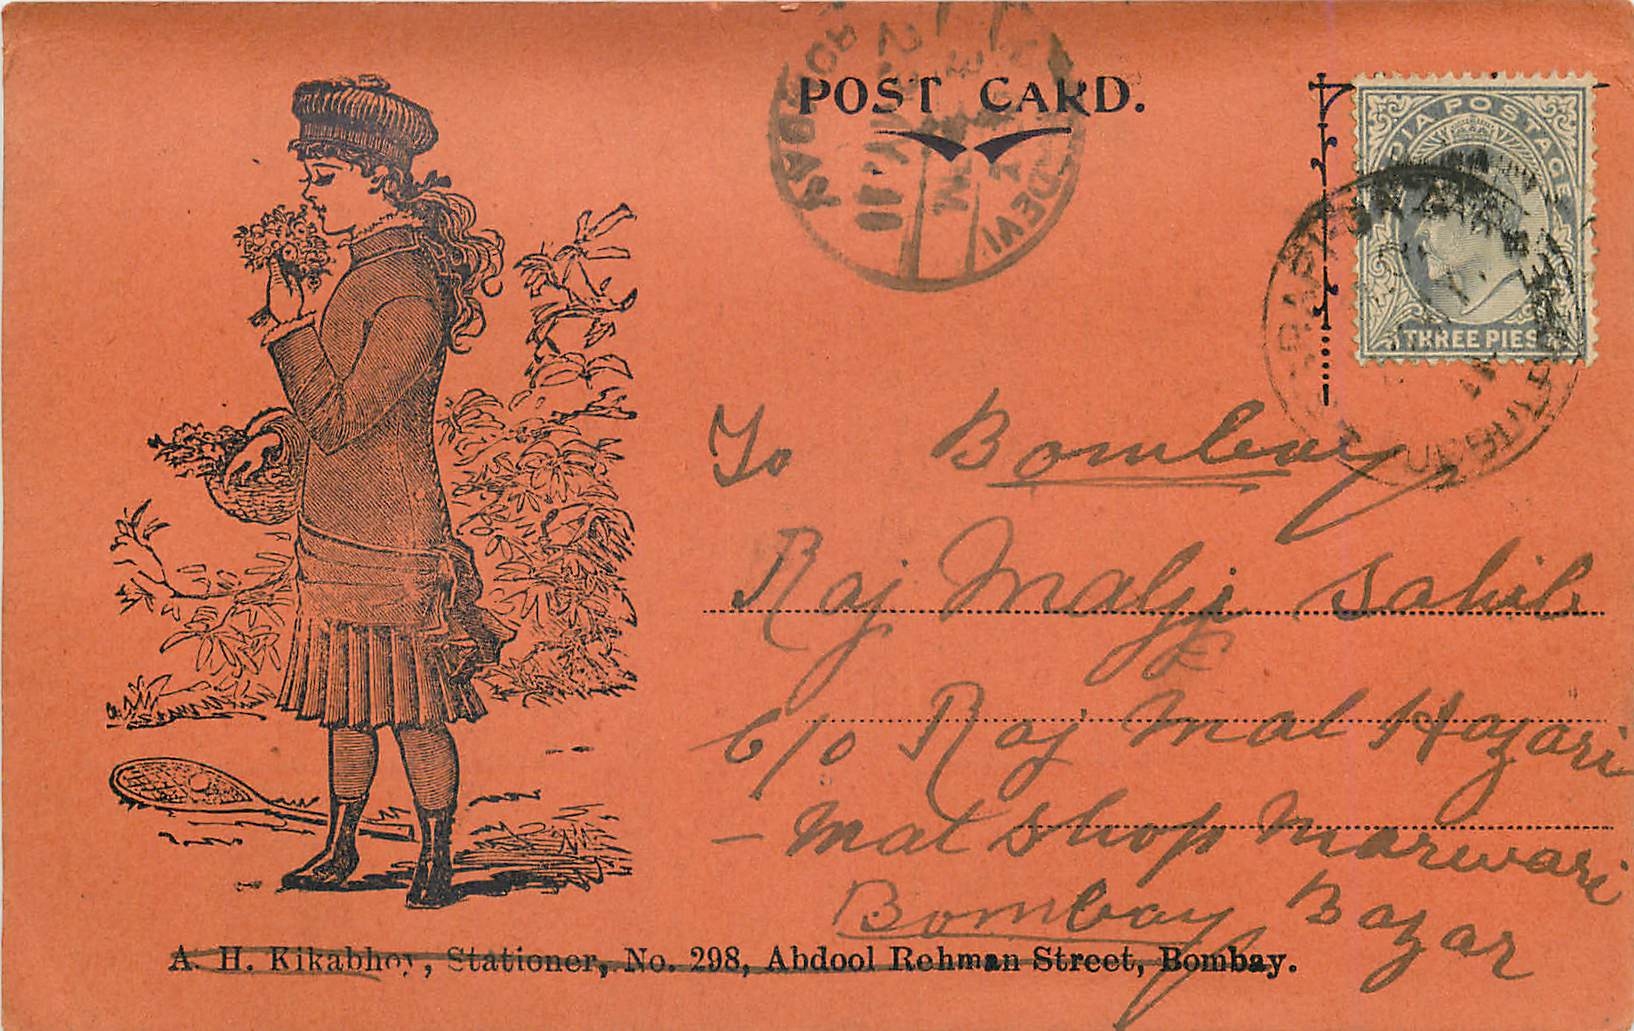 POST CARD.
INDIA POSTAGE
THREE PIES
To Bombay
Raj Malji Sahib
C/o Raj Mal Hazari
- mal Shop Marwari
Bazar
Bombay
A. H. Kikabhoy, Stationer, No. 298, Abdool Rehman Street, Bombay.